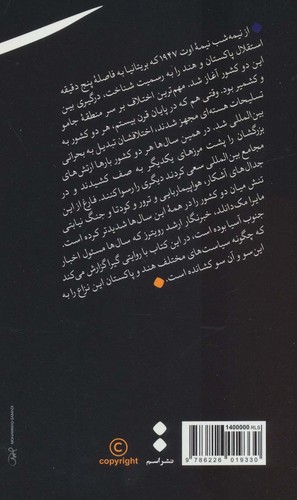 از نیمه‌شب نیمهٔ اوت ۱۹۴۷ که بریتانیا به فاصلهٔ پنج دقیقه
استقلال پاکستان و هند را به رسمیت شناخت، درگیری بین
این دو کشور آغاز شد. مهم‌ترین اختلاف بر سر منطقهٔ جامو
و کشمیر بود. وقتی هم که در پایان قرن بیستم، هر دو کشور به
تسلیحات هسته‌ای مجهز شدند، اختلافشان تبدیل به بحرانی
بین‌المللی شد. در همین سال‌ها هر دو کشور بارها ارتش‌های
بزرگشان را پشت مرزهای یکدیگر به صف کشیدند و در
مجامع بین‌المللی سعی کردند دیگری را رسوا کنند. فارغ از این
جدال‌های آشکار، هواپیماربایی و ترور و کودتا و جنگ نیابتی
تنش میان دو کشور را در همهٔ این سال‌ها شدیدتر کرده است.
مایرا مک‌دانلد، خبرنگار ارشد رویترز که سال‌ها مسئول اخبار
جنوب آسیا بوده است، در این کتاب با روایتی گیرا گزارش می‌کند
که چگونه سیاست‌های مختلف هند و پاکستان این نزاع را به
این سو و آن سو کشانده است.
1400000 RLS
9 786226 019330
نشر اسم
copyright